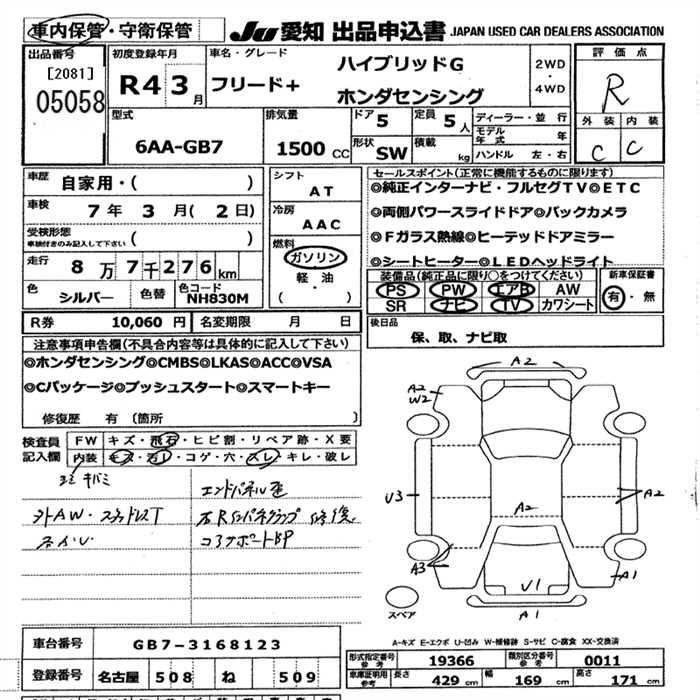 車内保管・守衛保管
JU 愛知 出品申込書 JAPAN USED CAR DEALERS ASSOCIATION
出品番号
[2081]
05058
初度登録年月
R4 3月
車名・グレード
フリード+
ハイブリッドG
ホンダセンシング
2WD・4WD
評価点
R
外装 内装
C C
型式
6AA-GB7
排気量
1500CC
ドア 5
定員 5人
形状 SW
積載 kg
ディーラー・並行
モデル年式 年
ハンドル 左・右
車歴 自家用・( )
車検 7年3月(2日)
受検形態
車検付きのみ記入して下さい ( )
走行 8万7千276km
色 シルバー 色替 色コード NH830M
シフト
AT
冷房
AAC
燃料
ガソリン
軽・油
( )
セールスポイント(正常に機能するものに限る)
◎純正インターナビ・フルセグTV◎ETC
◎両側パワースライドドア◎バックカメラ
◎Fガラス熱線◎ヒーテッドドアミラー
◎シートヒーター◎LEDヘッドライト
装備品(純正品に限り○をつけてください)
PS PW エアB AW
SR ナビ TV カワシート
新車保証書
有・無
R券 10,060円 名変期限 月 日
後日品
保、取、ナビ取
注意事項申告欄(不具合内容等は具体的に記入して下さい)
◎ホンダセンシング◎CMBS◎LKAS◎ACC◎VSA
◎Cパッケージ◎プッシュスタート◎スマートキー
修復歴 有 〔箇所 〕
検査員記入欄
FW キズ・飛石・ヒビ割・リペア跡・X要
内装 キズ・汚レ・コゲ・穴・スレ・キレ・破レ
キバミ
外AW・スタッドレスT
エンドパネル歪
右Rインパネクランプ 修復
コアサポートBP
A2
A2
W2
U3
A2
A2
A3
A1
U1
A1
スペア
A-キズ E-エクボ U-凹み W-補修跡 S-サビ C-腐食 XX-交換済
車台番号 GB7-3168123
登録番号 名古屋 508 ね 509
形式指定番号 参考 19366 類別区分番号 参考 0011
車庫証明用 参考 長さ 429cm 幅 169cm 高さ 171cm